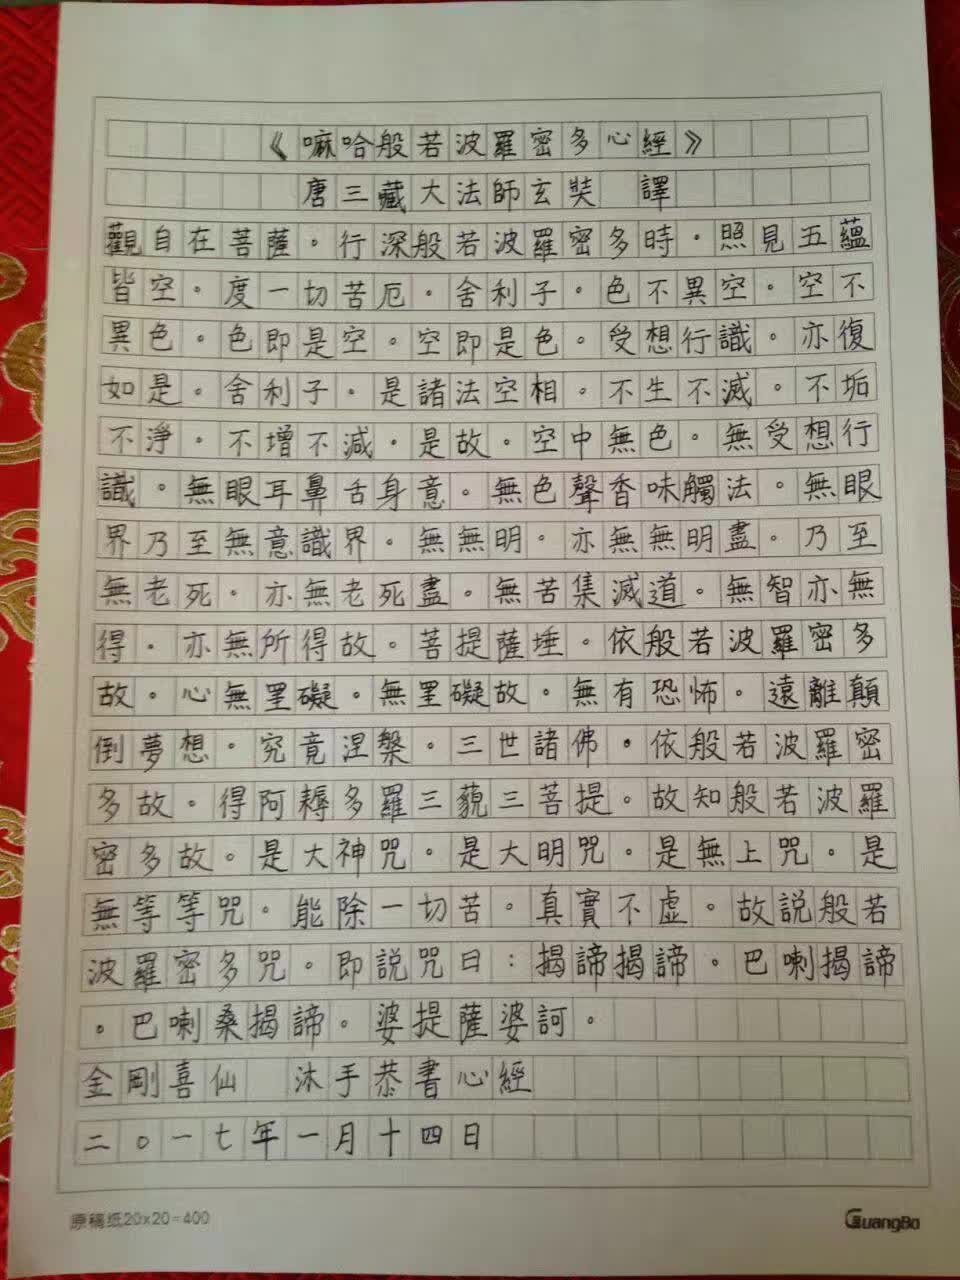 《嘛哈般若波羅密多心經》
唐三藏大法師玄奘 譯
觀自在菩薩。行深般若波羅密多時。照見五蘊
皆空。度一切苦厄。舍利子。色不異空。空不
異色。色即是空。空即是色。受想行識。亦復
如是。舍利子。是諸法空相。不生不滅。不垢
不淨。不增不減。是故。空中無色。無受想行
識。無眼耳鼻舌身意。無色聲香味觸法。無眼
界乃至無意識界。無無明。亦無無明盡。乃至
無老死。亦無老死盡。無苦集滅道。無智亦無
得。亦無所得故。菩提薩埵。依般若波羅密多
故。心無罣礙。無罣礙故。無有恐怖。遠離顛
倒夢想。究竟涅槃。三世諸佛。依般若波羅密
多故。得阿耨多羅三藐三菩提。故知般若波羅
密多故。是大神咒。是大明咒。是無上咒。是
無等等咒。能除一切苦。真實不虛。故說般若
波羅密多咒。即說咒曰：揭諦揭諦。巴喇揭諦
。巴喇桑揭諦。婆提薩婆訶。
金剛喜仙 沐手恭書心經
二〇一七年一月十四日
原稿纸20x20=400 GuangBo